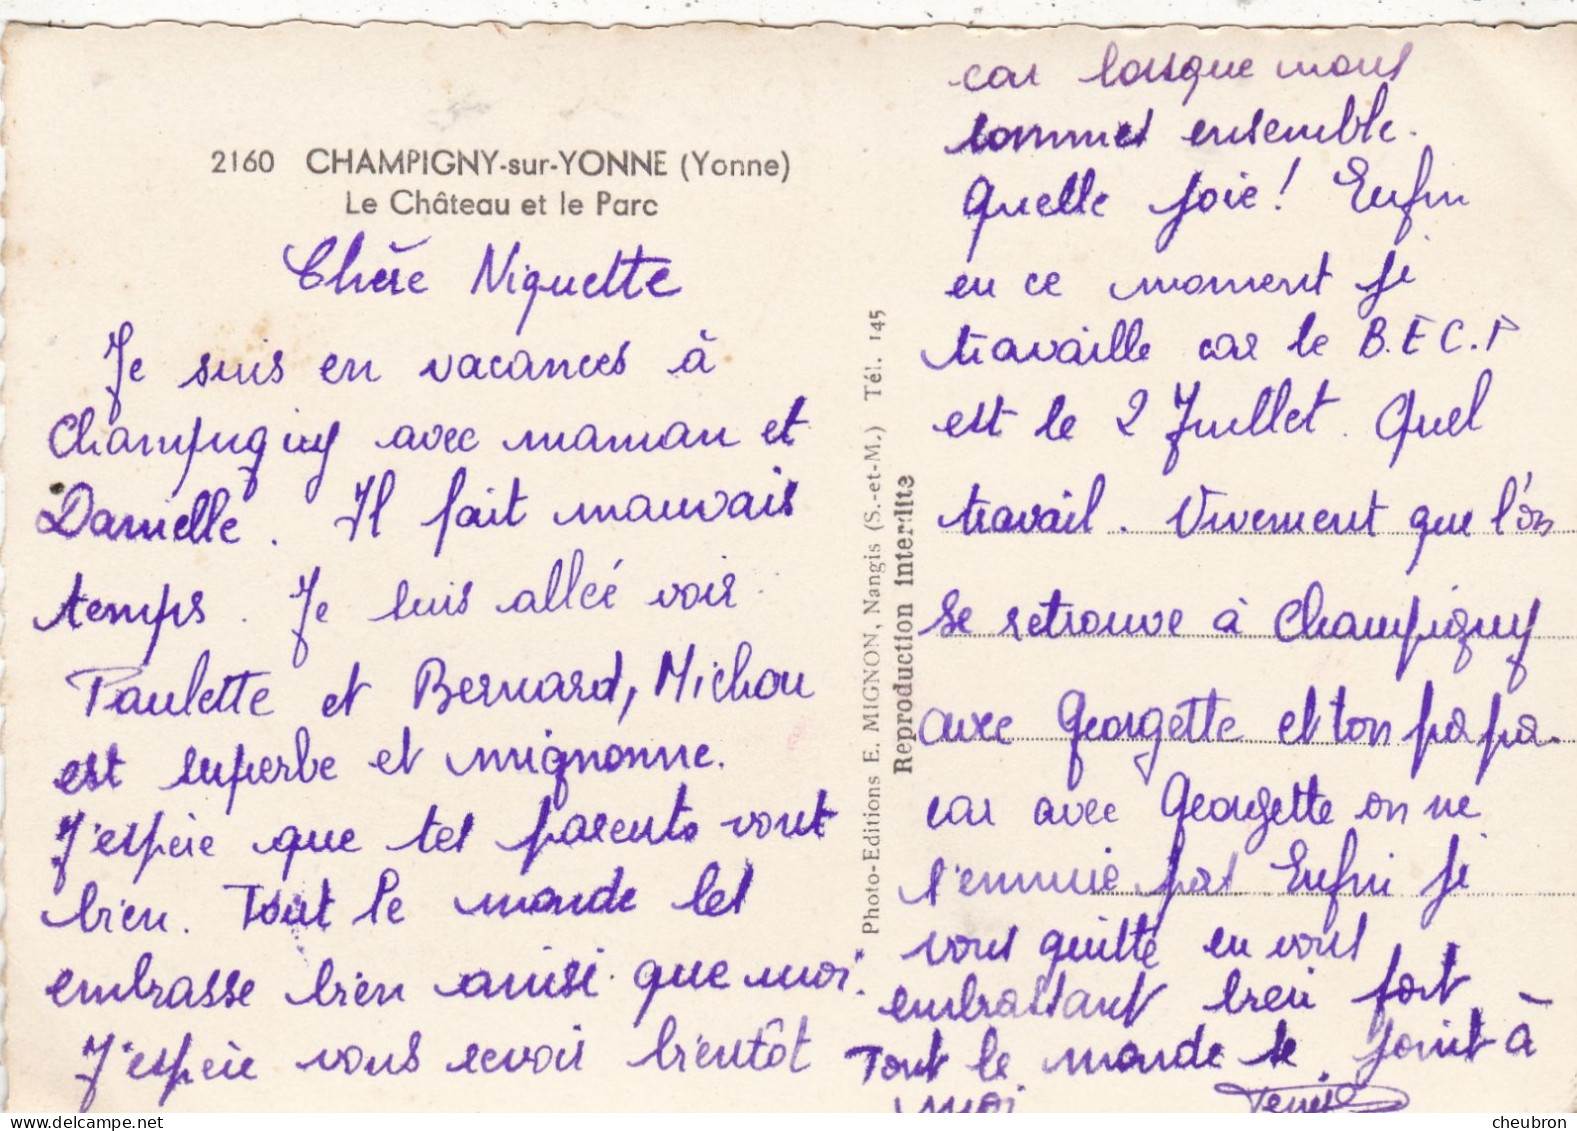 2160 CHAMPIGNY-sur-YONNE (Yonne)
Le Château et le Parc
Chère Niquette
Je suis en vacances à
Champigny avec maman et
Danielle. Il fait mauvais
temps. Je suis allée voir
Paulette et Bernard, Michou
est superbe et mignonne.
J'espère que tes parents vont
bien. Tout le monde les
embrasse bien ainsi que moi.
J'espère vous revoir bientôt
Photo-Editions E. MIGNON, Nangis (S.-et-M.) Tél. 145
Reproduction interdite
car lorsque nous
sommes ensemble.
Quelle joie! Enfin
en ce moment je
travaille car le B.E.C.P
est le 2 Juillet. Quel
travail. Vivement que l'on
se retrouve à Champigny
avec Georgette et ton papa.
car avec Georgette on ne
s'ennuie pas Enfin je
vous quitte en vous
embrassant bien fort
Tout le monde se joint à
moi
cheubron
www.delcampe.net